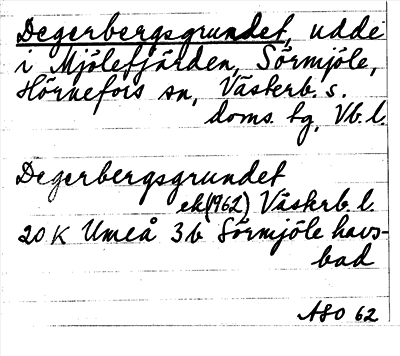 Degerbergsgrundet, udde
i Mjölefjärden, Sörmjöle,
Hörnefors sn, Västerb. s.
doms. tg, Vb. l.
Degerbergsgrundet
ek(1962) Västerb. l.
20 K Umeå 3b Sörmjöle havs-
bad
ASO 62